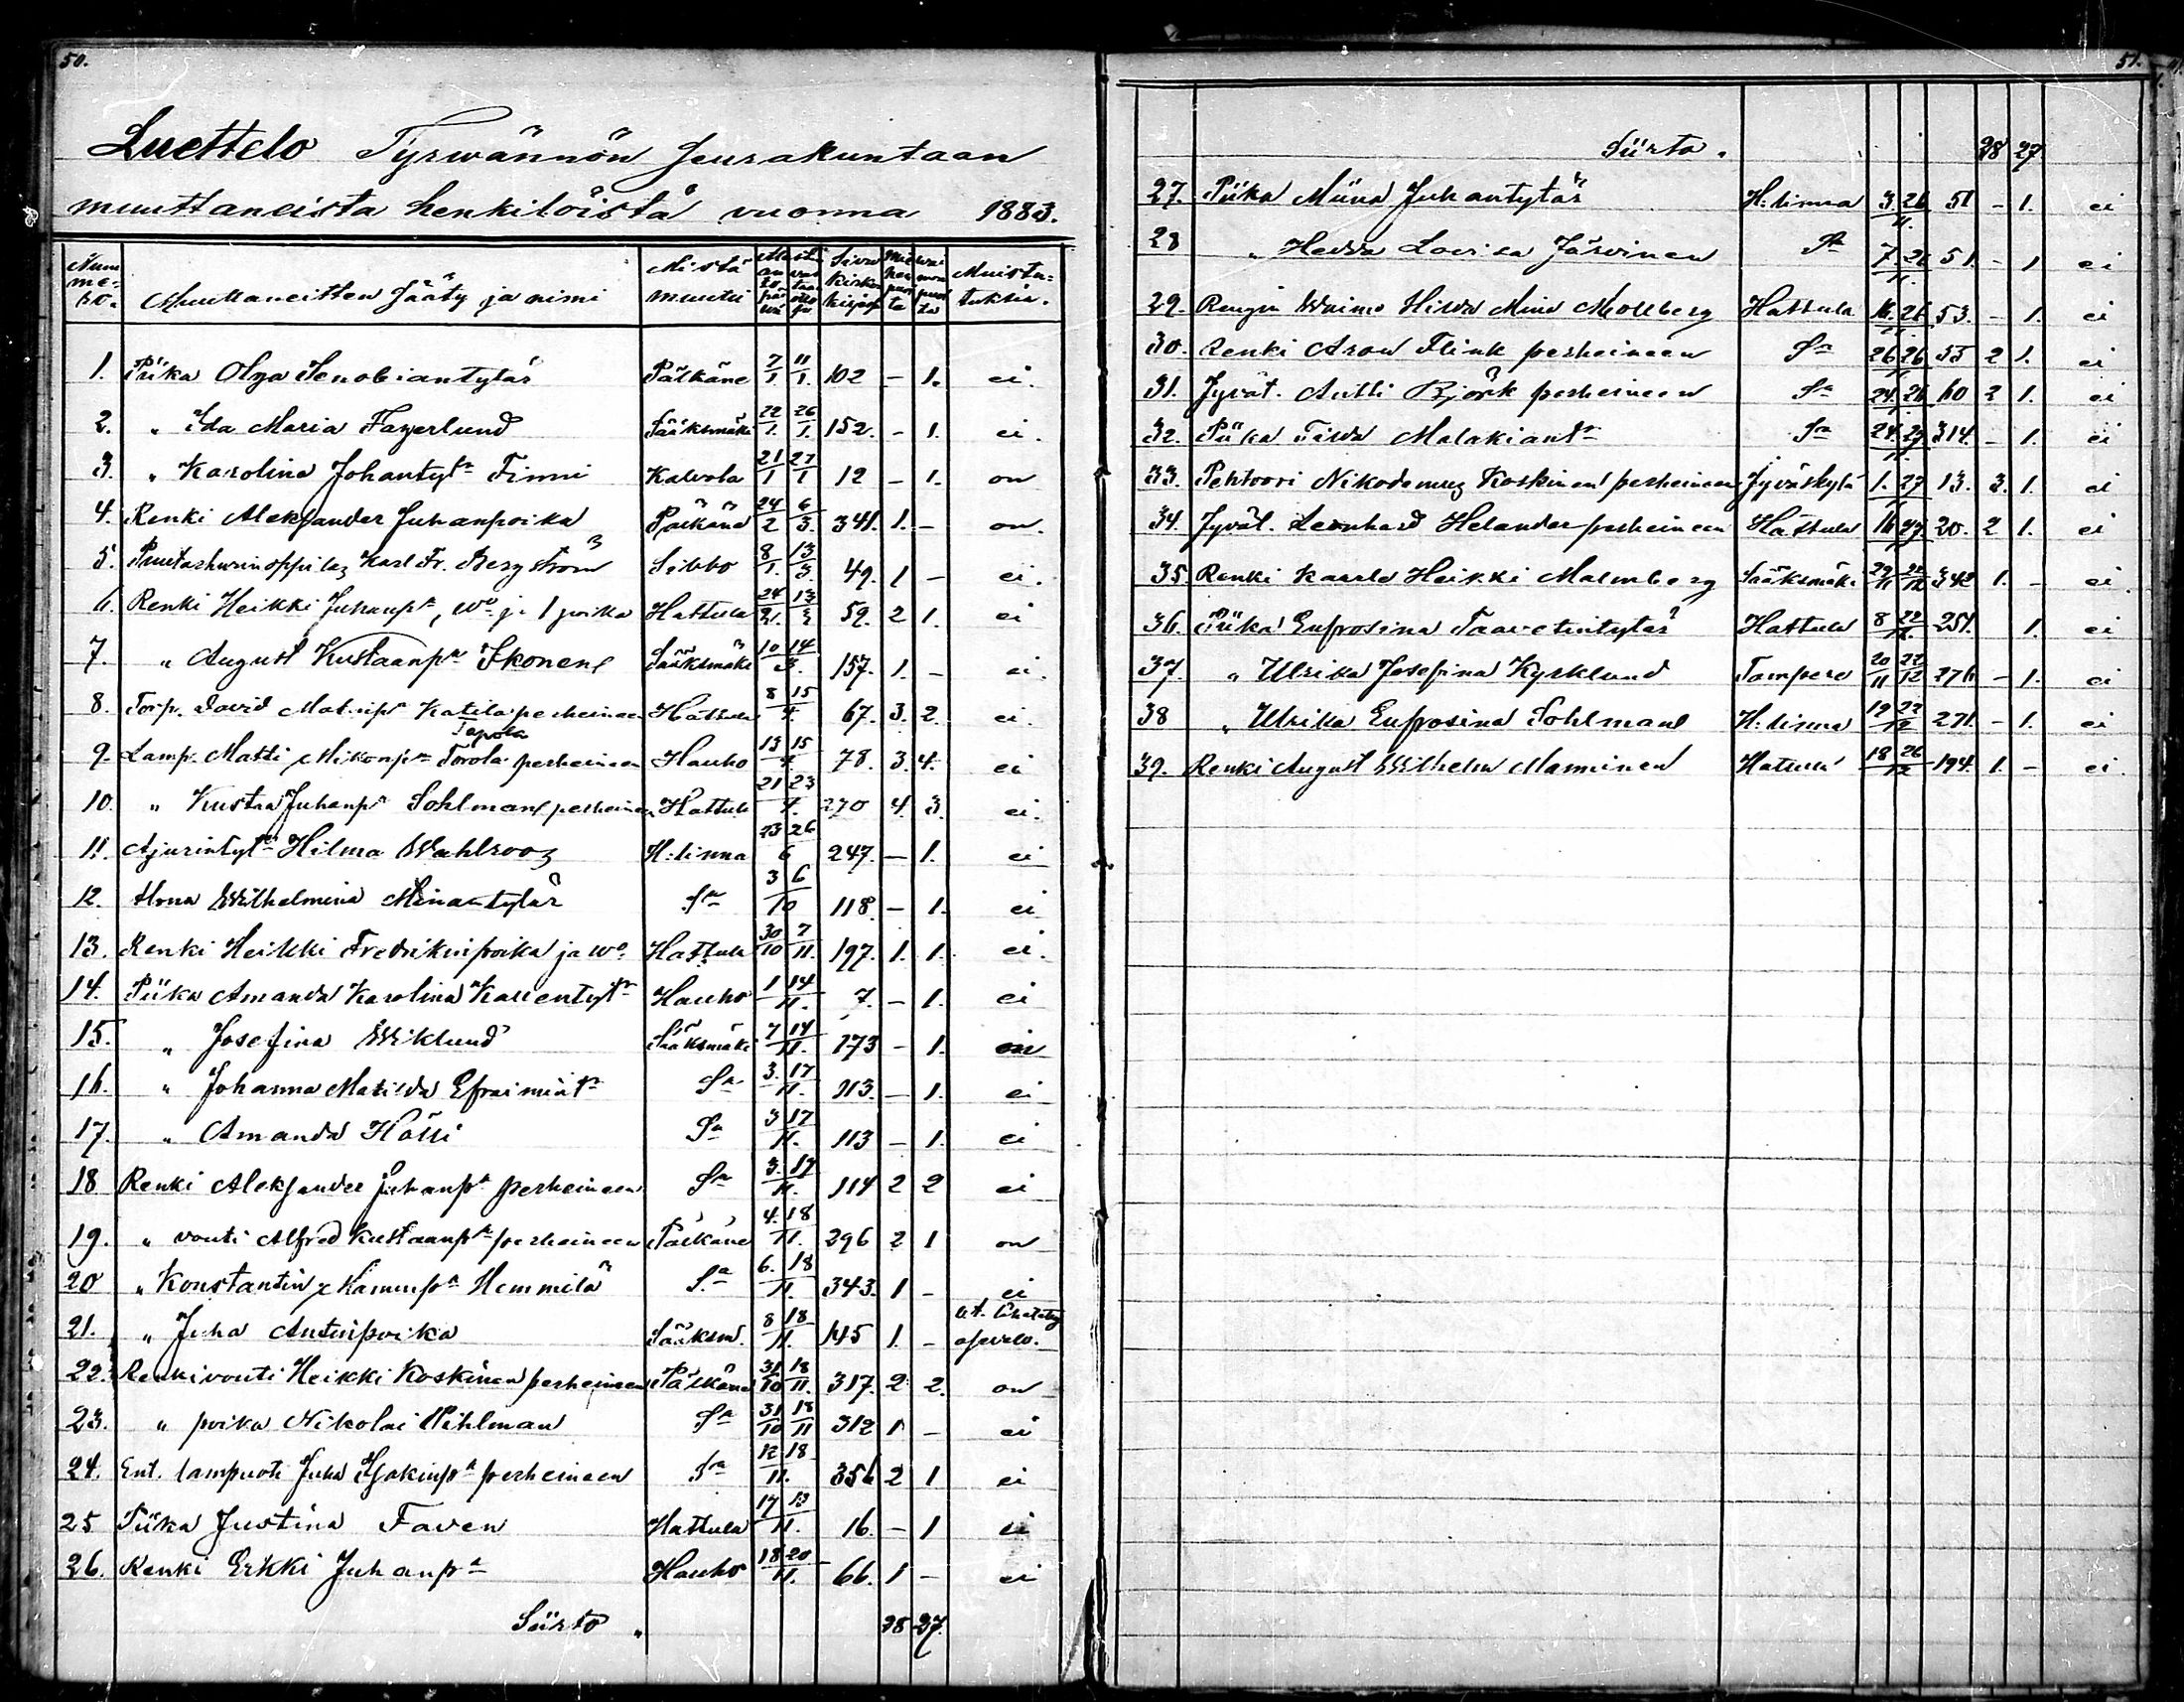 50.
Luettelo Tyrwännön seurakuntaan
muuttaneista henkilöistä vuonna 1883.
Num me- ro. Muuttaneitten sääty ja nimi Mistä muutti Siwu kirkon kirjassa Muistu- tuksia.
1. Piika Olga Senobiantytär Pälkäne 7/1 11/1. 102 - 1. ei.
2. " Ida Maria Fagerlund Sääksmäki 22/1. 26/1. 152. - 1. ei.
3. " Karolina Johantytr Finni Kalvola 21/1 27/1 12 - 1. on
4. Renki Aleksander Juhanpoika Pälkäne 24/2 6/3. 341. 1. - on.
5. Puutarhurinoppilas Karl Fr. Bergström Sibbo 8/1. 13/3. 49. 1 - ei.
6. Renki Heikki Juhanpa, wo. ja 1 poika Hattula 24/2. 13/3 59. 2 1. ei
7. " August Kustaanpa Ikonen Sääksmäki 10 14/3. 157. 1. - ei.
8. Torp. David Matinpa Katila perheineen Hattula 8 15/4. 67. 3. 2. ei.
Tapola
9. Lamp. Matti Mikonpa Torola perheineen Hauho 13 15/4. 78. 3. 4. ei
10. " Kustaa Juhanpa Sohlman perheineen Hattula 21 23/4. 270 4. 3. ei.
11. Ajurintytr Hilma Wahlroos H:linna 23 26/6 247. - 1. ei
12. Anna Wilhelmina Minantytär Sa 3 6/10 118. - 1. ei
13. Renki Heikki Fredrikinpoika ja wo. Hattula 30/10 7/11. 197. 1. 1. ei.
14. Piika Amanda Karolina Kallentytr Hauho 1 14/11. 7. - 1. ei
15. " Josefina Wiklund Sääksmäki 7 14/11. 173 - 1. on
16. " Johanna Matilda Efraimintr Sa 3. 17/11. 113. - 1. ei
17. " Amanda Hölli Sa 3 17/11. 113 - 1. ei
18 Renki Aleksander Juhanpa perheineen Sa 3. 17/11. 114 2 2 ei
19. " vouti Alfred Kustaanpa perheineen Pälkäne 4. 18/11. 296 2 1 on
20 " Konstantin Hemmilä Sa 6. 18/11. 343. 1 - ei
21. " Juha Antinpoika Sääksm. 8 18/11. 145 1. -
22. Renkivouti Heikki Koskinen perheineen Pälkäne 31/10 18/11. 317. 2 2. on
23. " poika Nikolai Pihlman Sa 31/10 18/11 312 1 - ei
24. Ent. lampuoti Juha Isakinpa perheineen Sa 12 18/11. 356 2 1 ei
25 Piika Justina Faven Hattula 17 19/11. 16. - 1 ei
26. Renki Erkki Juhanpa Hauho 18 20/11. 66. 1 - ei
Siirto " 28 27.
51.
Siirto " 28 27
27. Piika Miina Juhantytär H:linna 3 26/11. 51 - 1. ei
28 " Hedda Lovisa Järvinen Sa 7 26/11. 51. - 1 ei
29. Rengin Waimo Hilda Mina Mollberg Hattula 16. 26/11. 53. - 1. ei
30. Renki Aron Flink perheineen Sa 26 26/11 55 2 1. ei
31. Jyvät. Antti Björk perheineen Sa 24 26/11 60 2 1. ei
32. Piika Tilda Malakiantr Sa 24. 27/11 314. - 1. ei
33. Pehtoori Nikodemus Koskinen perheineen Jyväskylä 1. 27/11 13. 3. 1. ei
34. Jyvät. Leonhard Helander perheineen Hattula 16 27/11. 20. 2 1. ei
35. Renki Kaarle Heikki Malmberg Sääksmäki 29/11 22/12 342 1. - ei.
36. Piika Eufrosina Taavetintytär Hattula 8 22/12. 251. 1. ei
37. " Ulrika Josefina Kyrklund Tampere 20/11 22/12 276 - 1. ei
38 " Ulrika Eufrosina Sohlman H:linna 19 22/12 271. - 1. ei
39. Renki August Wilhelm Manninen Hattula 18 26/12 194. 1. - ei.